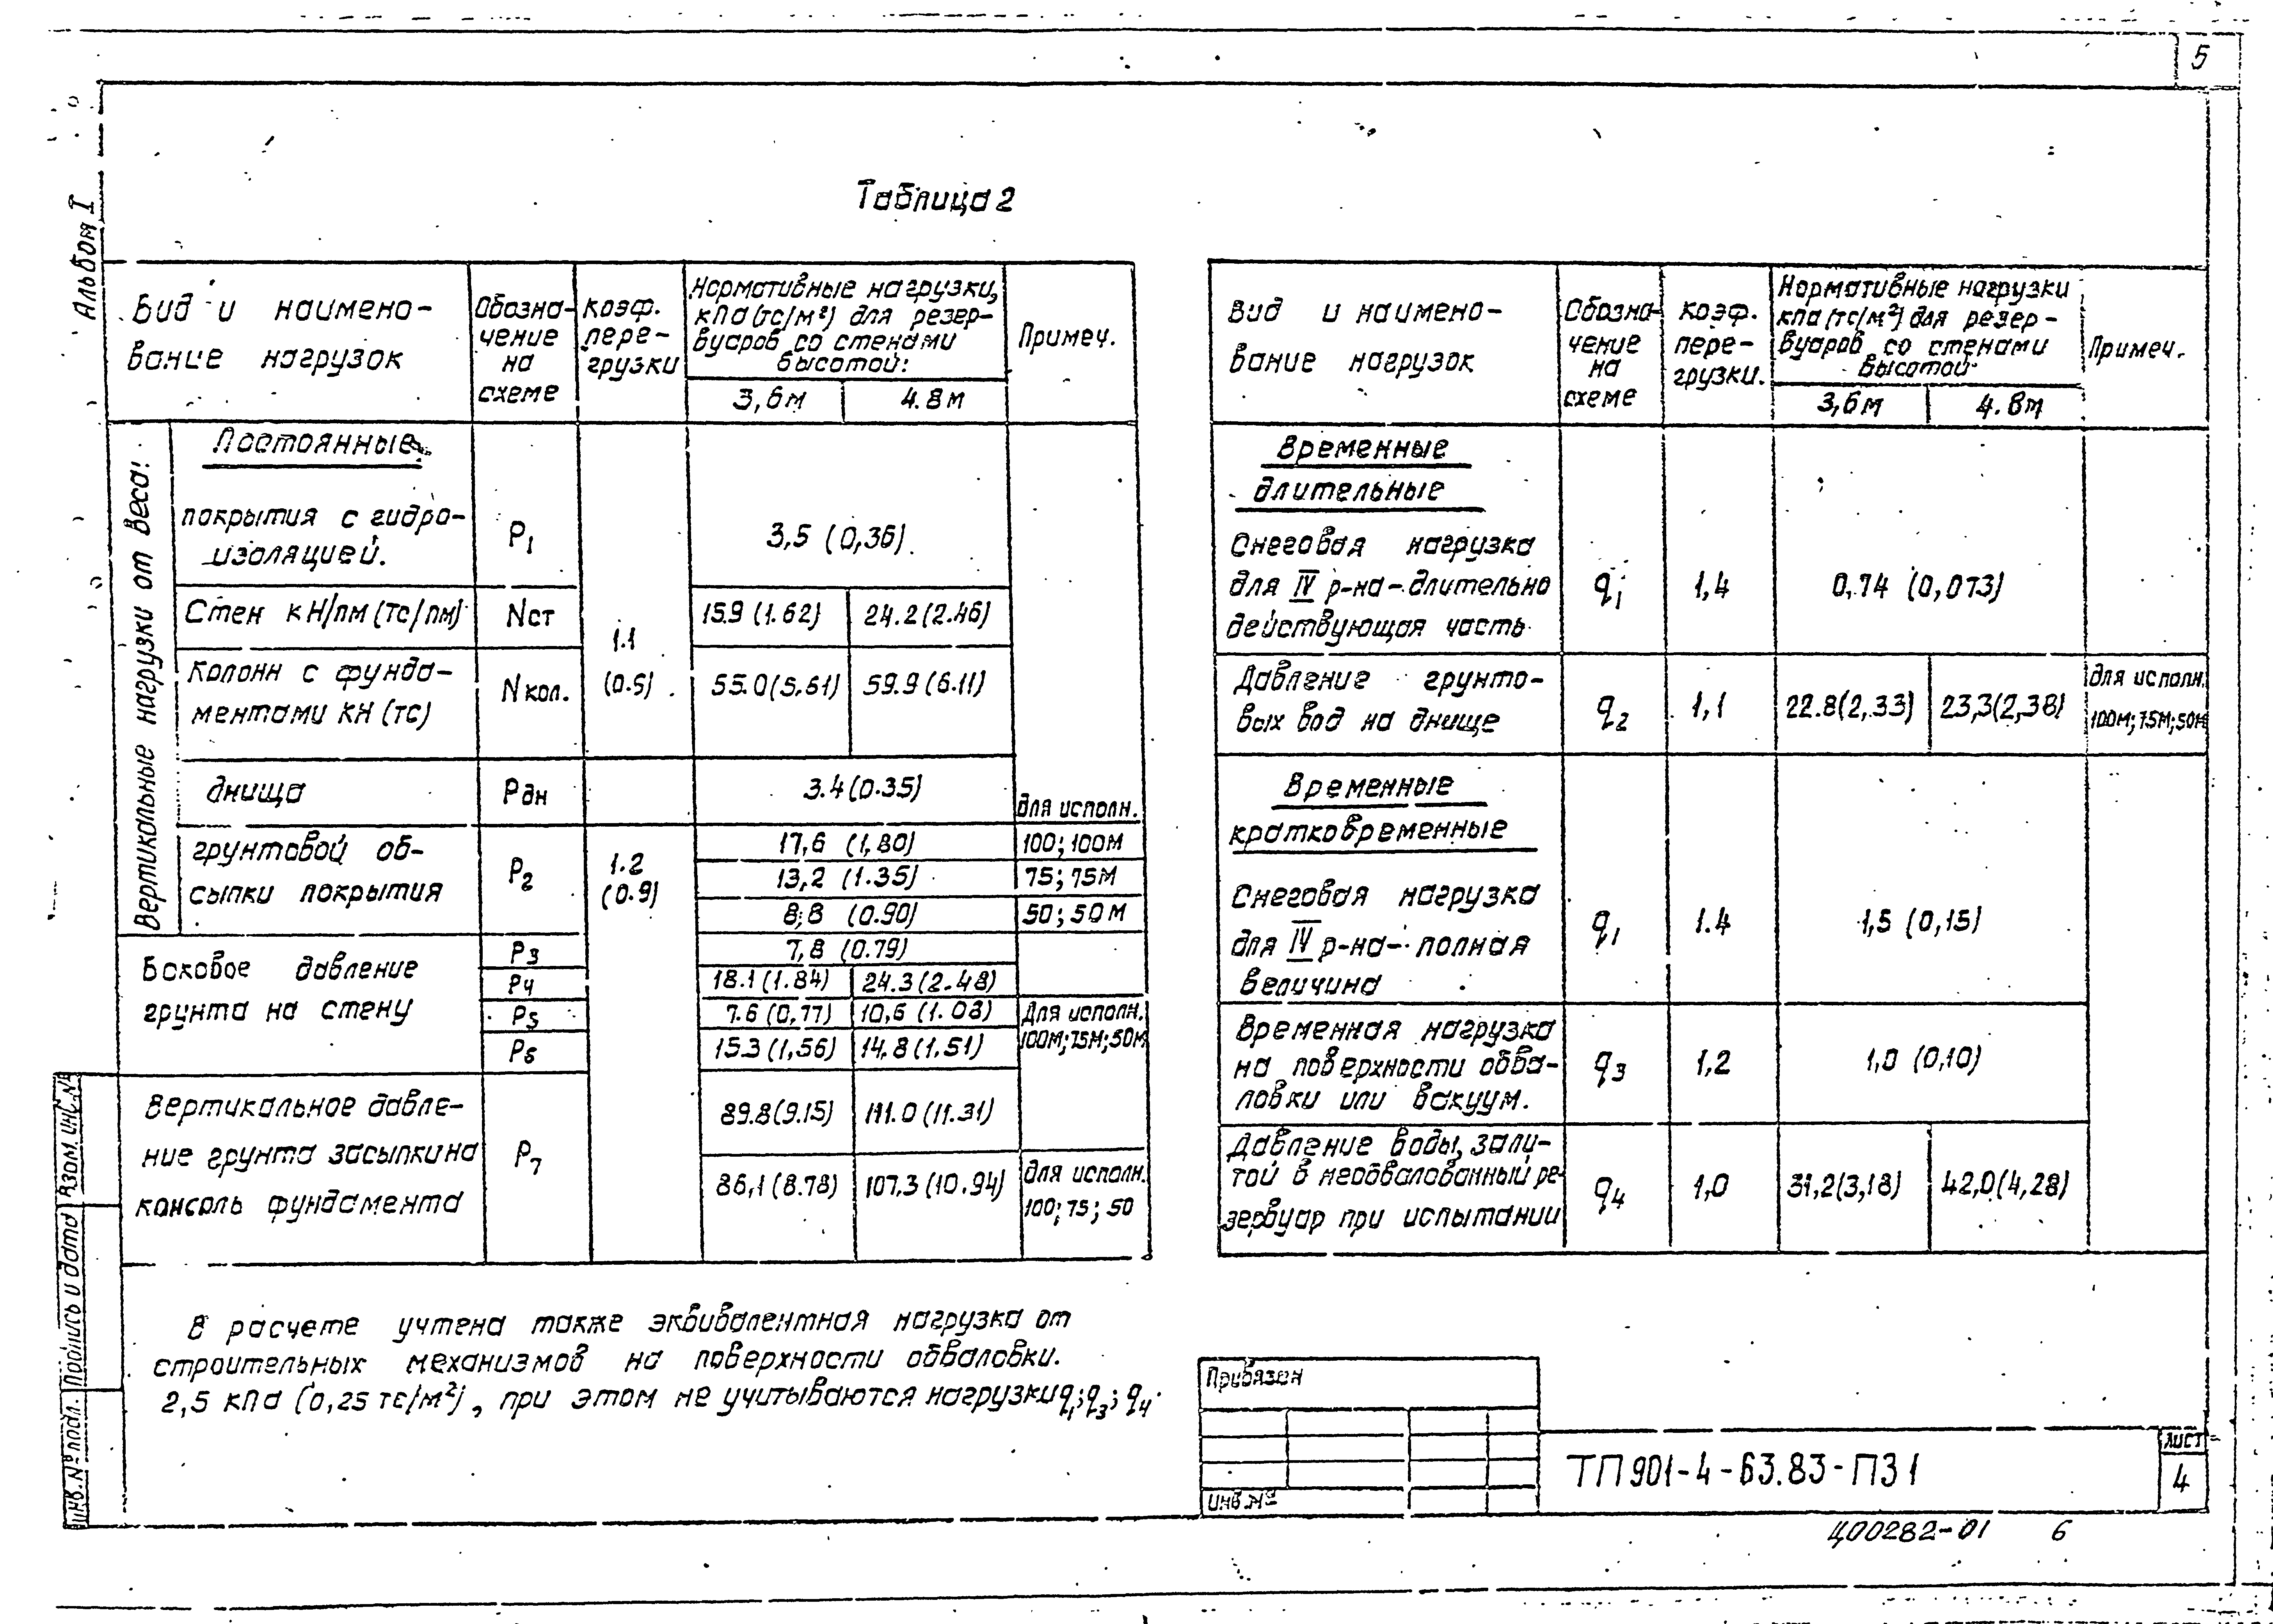 5
Альбом I
Таблица 2
Вид и наимено-
вание нагрузок
Обозна-
чение
на
схеме
коэф.
пере-
грузки
Нормативные нагрузки,
кПа (тс/м²) для резер-
вуаров со стенами
высотой:
3,6м
4.8м
Примеч.
Вертикальные нагрузки от веса:
Постоянные
покрытия с гидро-
изоляцией.
P1
3,5 (0,36)
Стен кН/пм (тс/пм)
Nст
15.9 (1.62)
24.2 (2.46)
1.1
(0.9)
Колонн с фунда-
ментами кН (тс)
Nкол.
55.0 (5.61)
59.9 (6.11)
днища
Рдн
3.4 (0.35)
для исполн.
грунтовой об-
сыпки покрытия
P2
1.2
(0.9)
17,6 (1,80)
100; 100М
13,2 (1.35)
75; 75М
8,8 (0.90)
50; 50М
Боковое давление
грунта на стену
P3
7,8 (0.79)
P4
18.1 (1.84)
24.3 (2.48)
P5
7.6 (0,77)
10,6 (1.08)
P6
15.3 (1,56)
14.8 (1.51)
Для исполн.
100М; 75М; 50М
Вертикальное давле-
ние грунта засыпки на
консоль фундамента
P7
89.8 (9.15)
111.0 (11.31)
86,1 (8.78)
107.3 (10.94)
для исполн.
100; 75; 50
Вид и наимено-
вание нагрузок
Обозна-
чение
на
схеме
коэф.
пере-
грузки.
Нормативные нагрузки
кПа (тс/м²) для резер-
вуаров со стенами
высотой
3,6м
4.8м
Примеч.
Временные
длительные
Снеговая нагрузка
для IV р-на - длительно
действующая часть
q1
1,4
0,74 (0,073)
Давление грунто-
вых вод на днище
q2
1,1
22.8 (2,33)
23,3 (2,38)
для исполн.
100М; 75М; 50М
Временные
кратковременные
Снеговая нагрузка
для IV р-на - полная
величина
q1
1.4
1,5 (0,15)
Временная нагрузка
на поверхности обва-
ловки или вакуум.
q3
1,2
1,0 (0,10)
Давление воды, зали-
той в необвалованный ре-
зервуар при испытании
q4
1,0
31,2 (3,18)
42,0 (4,28)
В расчете учтена также эквивалентная нагрузка от
строительных механизмов на поверхности обваловки.
2,5 кПа (0,25 тс/м²), при этом не учитываются нагрузки q1; q3; q4.
Привязан
Инв. №
ТП 901-4-63.83-ПЗ 1
Лист
4
Ц00282-01 6
Взам. инв. №
Подпись и дата
Инв. № подл.